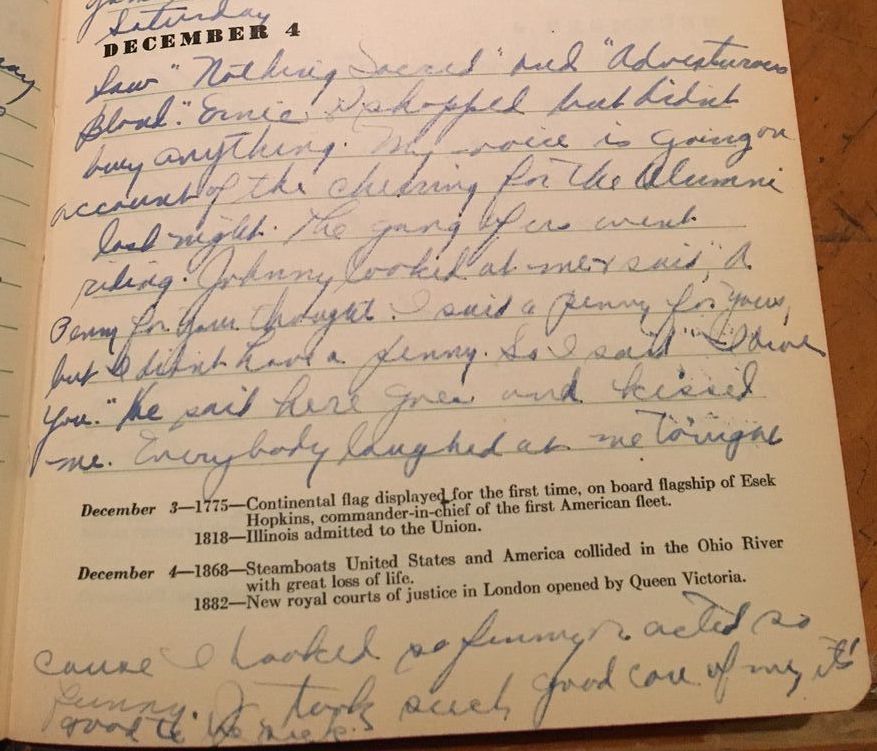 Saturday
DECEMBER 4
Saw "Nothing Sacred" and "Adventurous
Blond." Ernie & I shopped but didnt
buy anything. My voice is going on
account of the cheering for the Alumni
last night. The gang of us went
riding. Johnny looked at me & said, "A
Penny for your thought. I said a penny for yours,
but I didnt have a penny. So I said "I owe
you." He said here goes and kissed
me. Everybody laughed at me tonight
December 3—1775—Continental flag displayed for the first time, on board flagship of Esek
Hopkins, commander-in-chief of the first American fleet.
1818—Illinois admitted to the Union.
December 4—1868—Steamboats United States and America collided in the Ohio River
with great loss of life.
1882—New royal courts of justice in London opened by Queen Victoria.
cause I looked so funny & acted so
funny. J. took such good care of me, it's
good to be